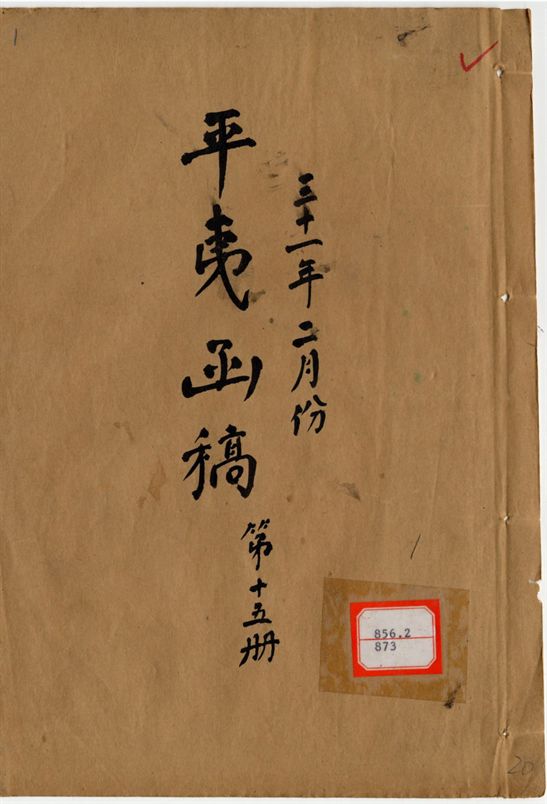 三十一年二月份
平夷函稿
第十五册
856.2
873
1
20